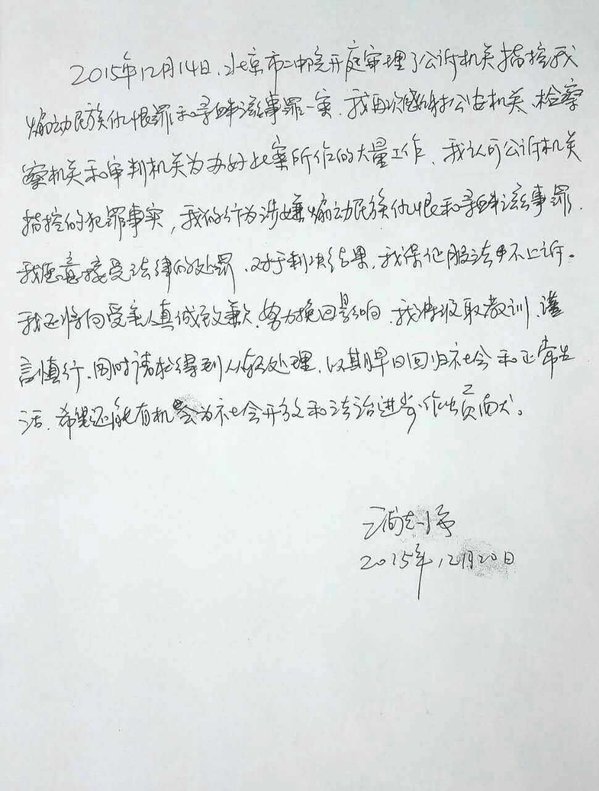 2015年12月14日，北京市二中院开庭审理了公诉机关指控我
煽动民族仇恨罪和寻衅滋事罪一案，我再次感谢公安机关、检察
察机关和审判机关为办好此案所作的大量工作，我认可公诉机关
指控的犯罪事实，我的行为涉嫌煽动民族仇恨和寻衅滋事罪，
我愿意接受法律的处罚，对于判决结果，我保证服法并不上诉。
我还将向受害人真诚致歉，努力挽回影响，我将吸取教训，谨
言慎行，同时请求得到从轻处理，以期早日回归社会和正常生
活，希望还能有机会为社会开放和法治进步作出贡献。
2015年12月20日